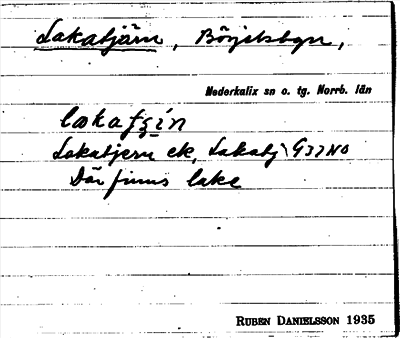 Lakatjärn, Börjelsbyn,
Nederkalix sn o. tg. Norrb. län
Lakatjern ek, Lakatj G37NO
Där finns lake
RUBEN DANIELSSON 1935